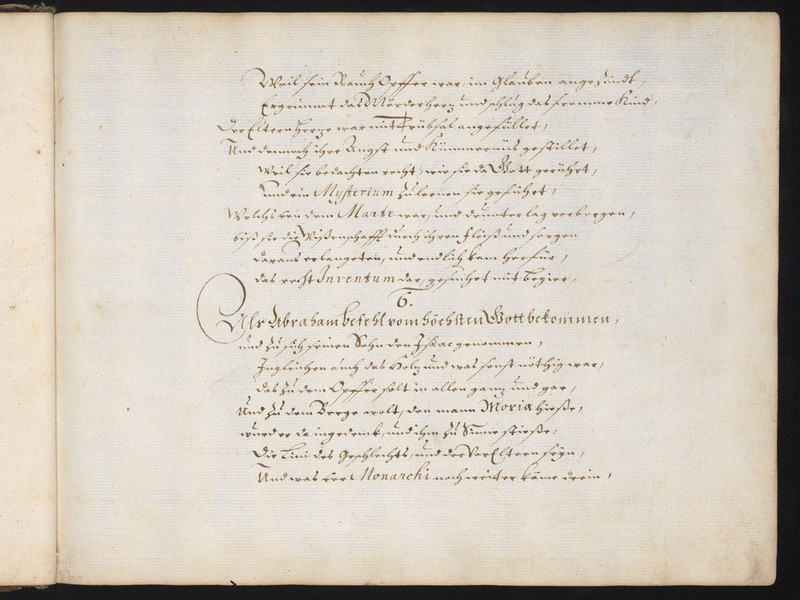 Weil sein Rauch Opffer war, im Glauben angezündt,
Ergrimmt das Mörderherz und schlug das fromme Kind,
Der Eltern Herze war mit Trübsal angefüllet,
Und dennoch ihre Angst und Kümmernüs gestillet,
Weil sie bedachten recht, wie sie da Gott gerührt,
und ein Mysterium zu lernen sie geführt,
Welchs von dem Marte war, und drunter lag verborgen,
biß sie die Wißenschafft durch ihren fleiß und sorgen
daraus erlangeten, und endlich kam herfür,
das recht Inventum dar, gesuchet mit begier,
6.
Als Abraham befehl vom höchsten Gott bekommen,
und zu sich seinen Sohn den Isaac genommen,
Ingleichen auch das Holz und was sonst nöthig war,
das zu dem Opffer solt in allen ganz und gar,
Und zu dem Berge wolt, den mann Moria hieße,
wurd er da ingedenk, und ihm zu Sinne stieße,
Die Lini des Geschlechts, und der VorEltern seyn,
Und was vor Monarchi noch weiter käme drein,